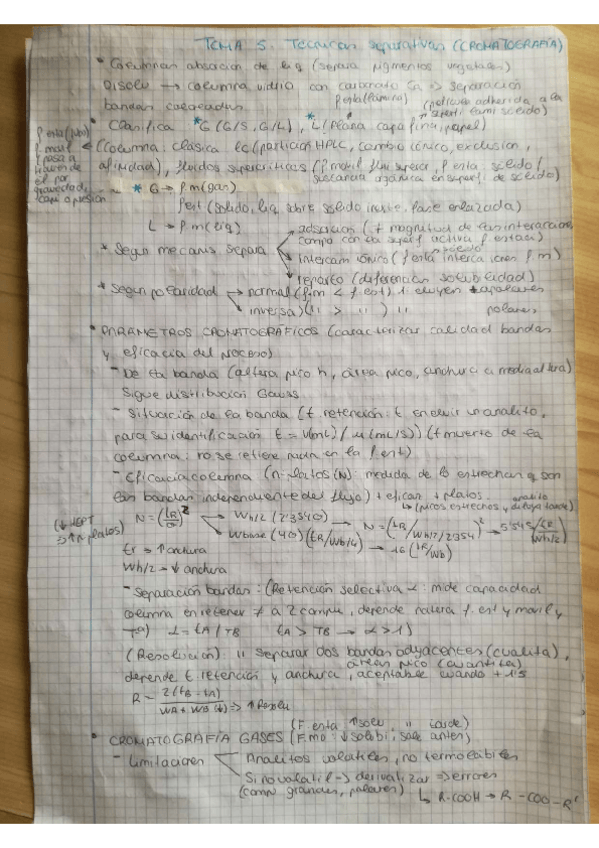 TEMA 5. Técnicas separativas (CROMATOGRAFÍA)
* Columnas absorción de liq (separa pigmentos vegetales)
Disolv → columna vidrio con carbonato Ca => separación
bandas coloreadas. P.esta (lámina) (película adherida a la
* Clasifica * G (G/S, G/L), * L (Plana capa fina, papel)
(Columna: clásica LC (partición HPLC, cambio iónico, exclusión,
afinidad), fluidos supercríticos (P.móvil flu supercr, P.esta sólido/
sustancia orgánica en superfi. de sólido)
P. movil
pasa a
través de
el por
gravedad,
capi o presión
* G → P.m (gas)
P.est (sólido, liq sobre sólido inerte, fase enlazada)
L → P.m (liq)
* Según mecanis separa
adsorción (≠ magnitud de las interaccio
compo con la superf activa P. estac)
intercam iónico (P.esta interca iones P.m)
reparto (diferencias solubilidad)
* Según polaridad → normal (P.m < P.est) 1º eluyen + apolares
→ inversa (" > ") " polares
* PARÁMETROS CROMATOGRÁFICOS (caracterizar calidad bandas
y eficacia del proceso)
- De la banda (altura pico h, área pico, anchura a media altura)
Sigue distribución Gauss
- Situación de la banda (t. retención: t en eluir un analito,
para su identificación t = V(mL) / u (mL/s)) (t muerto de la
columna: no se retiene nada en la P.est)
- Eficacia columna (nº platos (N): medida de lo estrechas q son
las bandas independiente del flujo) + eficaz + platos
N = (tR/σ)² → Wh/2 (2'354σ) → N = (tR/Wh/2/2'354)² → 5'545 (tR/Wh/2)
(↓ HEPT => ↑ nº platos)
Wbase (4σ) (tR/Wb/4) → 16 (tR/Wb)
tr => ↑ anchura
Wh/2 → ↓ anchura
- Separación bandas: (Retención selectiva α: mide capacidad
columna en retener ≠ a 2 comp, depende natura P. est y movil y
Tª) α = tA / TB (A > TB → α > 1)
(Resolución): " separar dos bandas adyacentes (cualita),
áreas pico (cuantita)
depende t. retención y anchura, aceptable cuando + 1'5
R = 2(tB - tA) / WA + WB (↓) => ↑ Resolu
* CROMATOGRAFÍA GASES (F. esta: ↑ solu, " tarde)
(F. mo: ↓ solubi, sale antes)
- Limitaciones
Analitos volátiles, no termolábiles
Si no volátil → derivatizar => errores
(comp grandes, polares) ↳ R-COOH → R-COO-R'